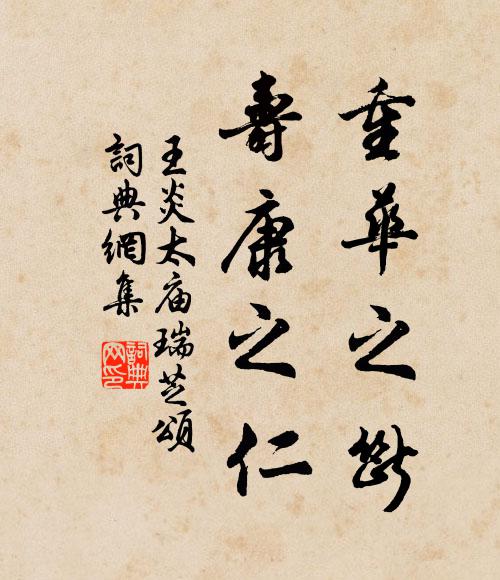 重華之斷
壽康之仁
王炎太庙瑞芝頌
詞典網集
詞典網印